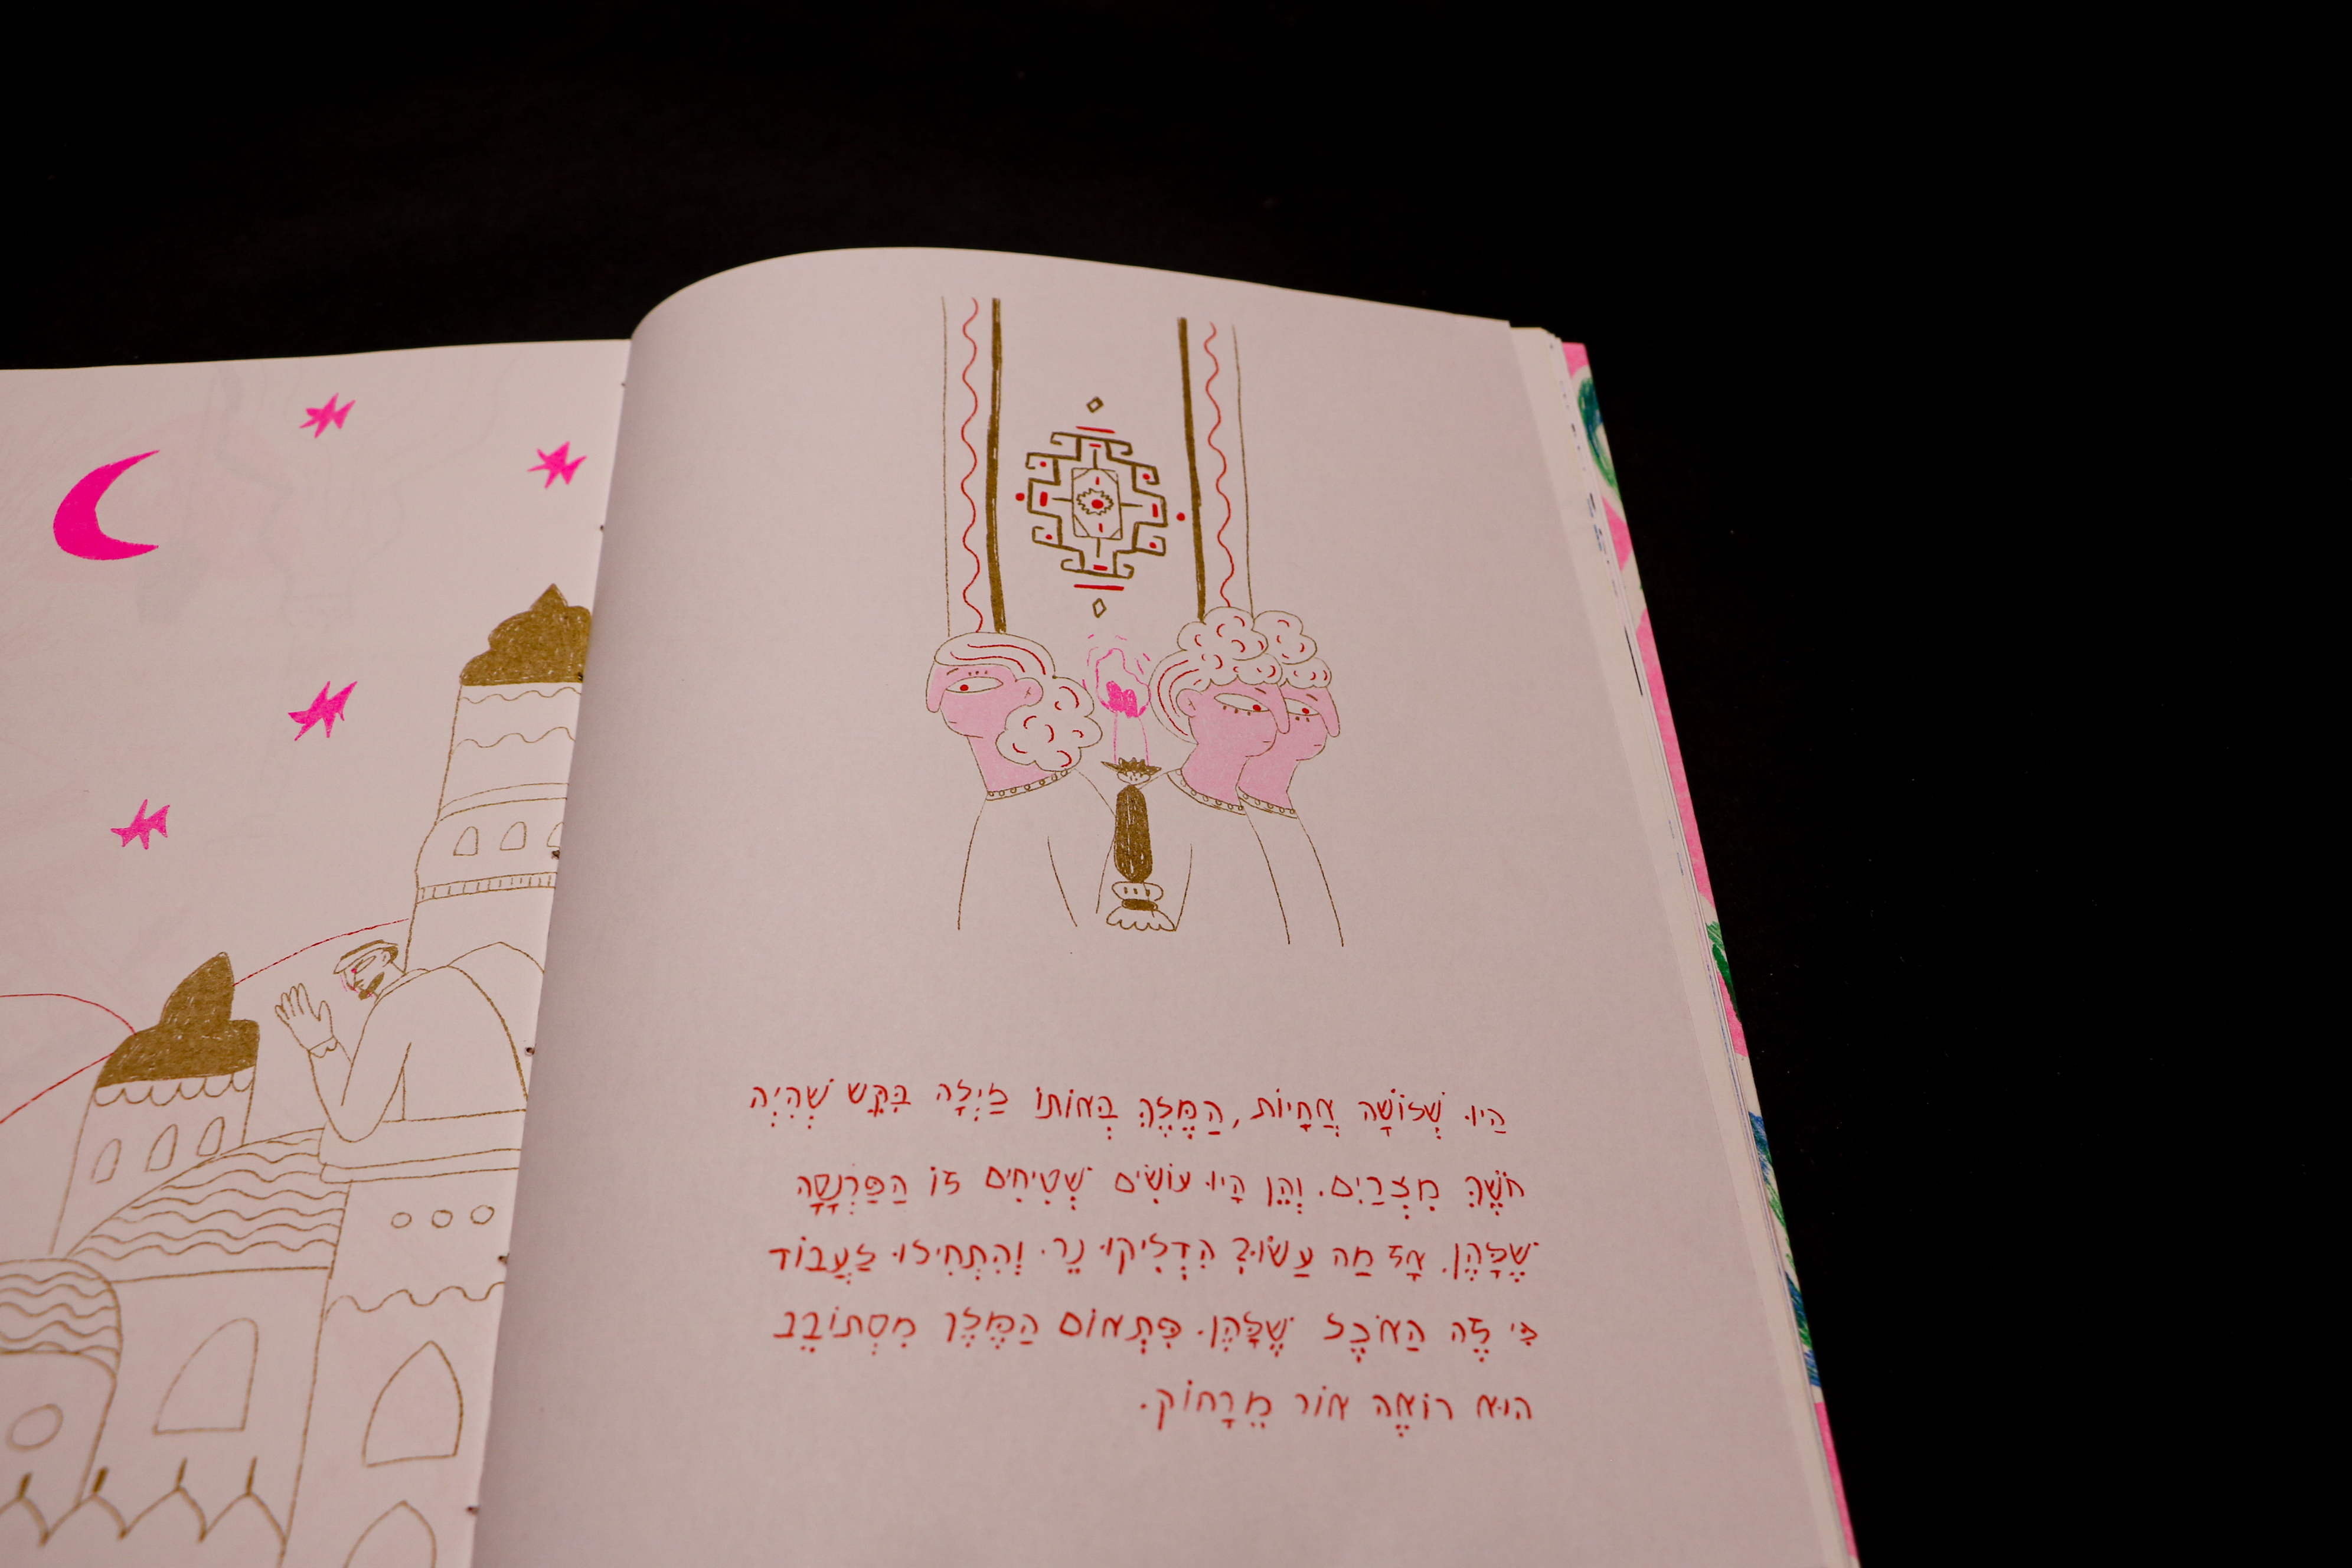 הַיוּ שְׁלוֹשָׁה אֲחָיוֹת, הַמֶּלֶךְ בְּאוֹתוֹ לַיְלָה בִּקֵּשׁ שֶׁהִיְה
חֹשֶׁךְ מִצְרַיִם. וְהֵן הָיוּ עוֹשִׂים שְׁטִיחִים זוֹ הַפַּרְנָסָה
שֶׁלָּהֶן. אָז מַה עַשׂוּ? הִדְלִיקוּ נֵר. וְהִתְחִילוּ לַעֲבוֹד
כִּי זֶה הַאֹכֶל שֶׁלָּהֶן. פִּתְאוֹם הַמֶּלֶךְ מִסְתּוֹבֵב
הוּא רוֹאֶה אוֹר מֵרָחוֹק.